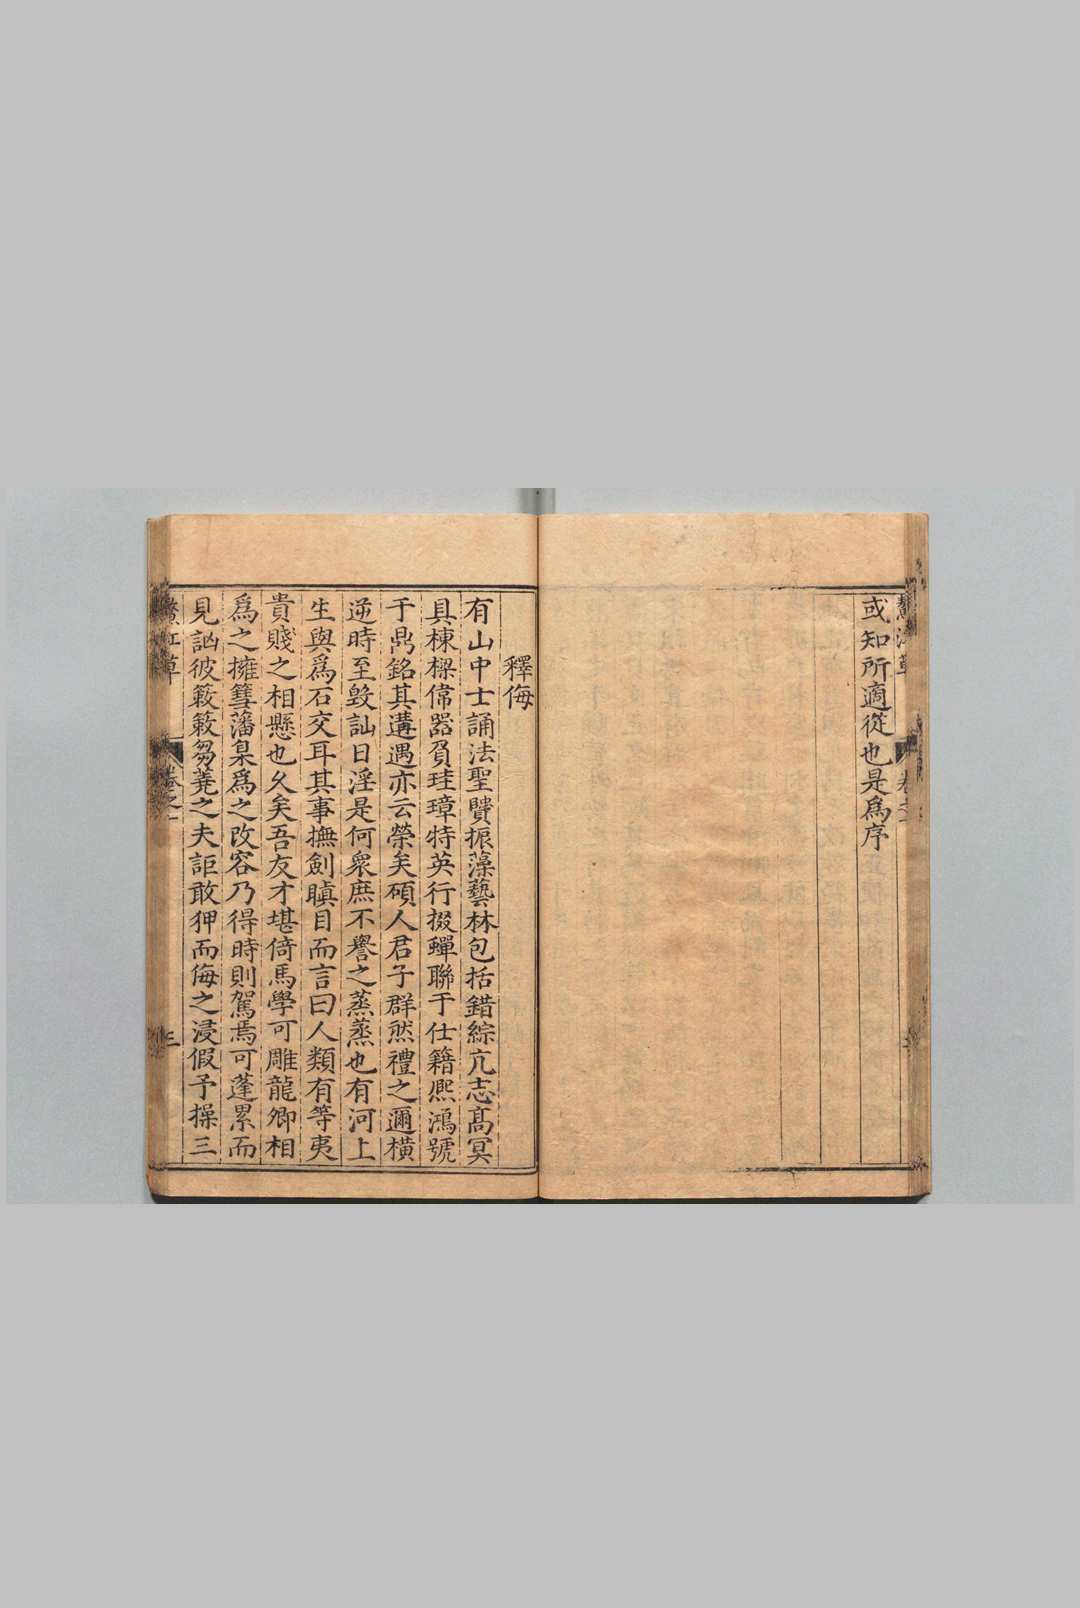 或知所適從也是爲序
卷之一
釋侮
有山中士誦法聖賢振藻藝林包括錯綜亢志高冥
具棟樑偉器負珪璋特英行掇蟬聯于仕籍熈鴻號
于鼎銘其遘遇亦云榮矣碩人君子群然禮之邇橫
逆時至毀訕日淫是何衆庶不譽之蒸蒸也有河上
生與爲石交耳其事撫劍瞋目而言曰人類有等夷
貴賤之相懸也久矣吾友才堪倚馬學可雕龍卿相
爲之擁篲藩臬爲之改容乃得時則駕焉可蓬累而
見訩彼簌簌芻蕘之夫詎敢狎而侮之浸假予操三
卷之一
三